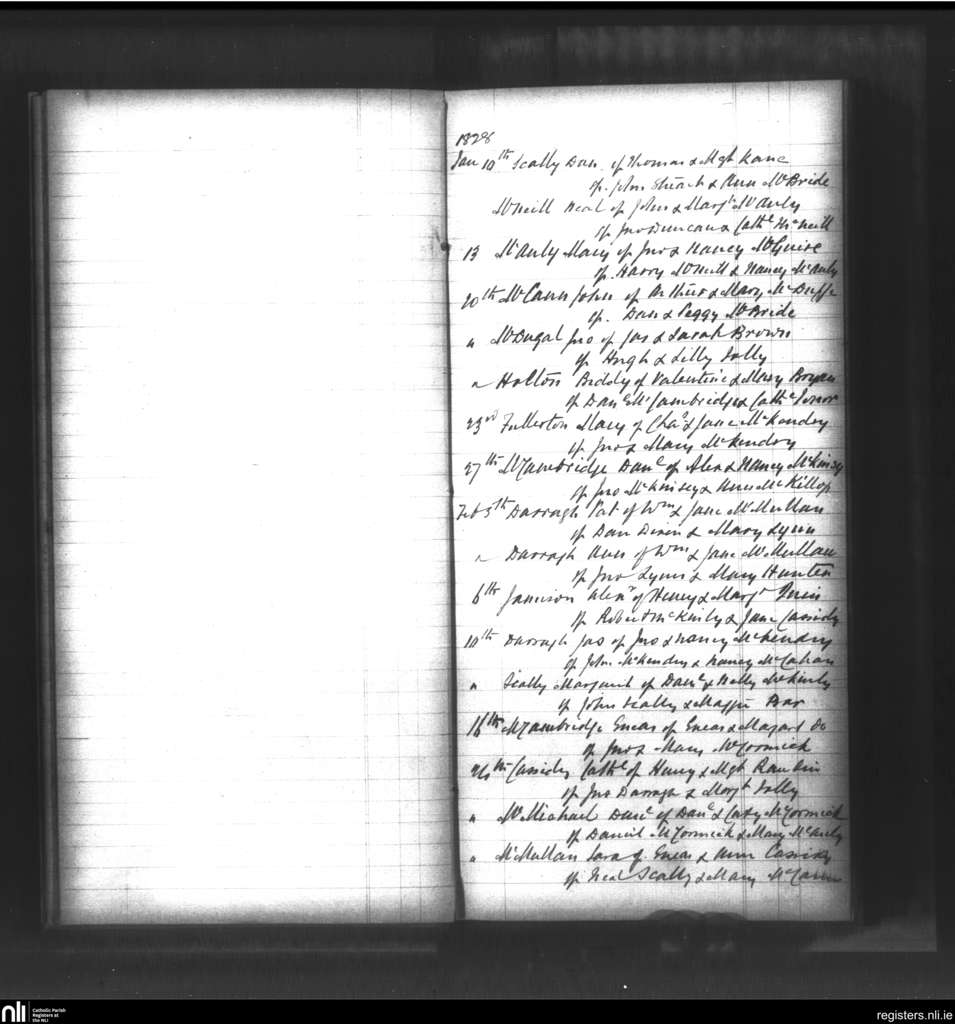 1828
Jan 10th Scally Dan. of Thomas & Mgt Kane
sp. John & Ann McBride
McNeill Neal of John & Margt McAuly
sp Jno Duncan & Cathe McNeill
13 McAuly Mary of Jno & Nancy McGuire
sp. Harry McNeill & Nancy McAuly
20th McCann John of Arthur & Mary McDuffe
sp. Dan & Peggy McBride
" McDugal Jno of Jas & Sarah Brown
sp Hugh & Lilly Jolly
" Holton Biddy of Valentine & Mary Bryan
sp Danl McCambridge & Cathe
23rd Fullerton Mary of Chas & Jane McKendry
sp Jno & Mary McKendry
27th McCambridge Danl of Alex & Nancy McKinsey
sp Jno McKinsey & Ann McKillop
Feb 5th Darragh Pat of Wm & Jane McMullan
sp Dan & Mary Lynn
" Darragh Ann of Wm & Jane McMullan
sp Jno Lynn & Mary Hunter
6th Jamison Alexr of Henry & Margt
sp Robert McKinly & Jane Cassidy
10th Darragh Jas of Jno & Nancy McKendry
sp John McKendry & Nancy McCahan
" Scally Margaret of Danl & Nelly McKinly
sp John Scally & Maggie
16th McCambridge Eneas of Eneas & Do
sp Jno & Mary McCormick
26th Cassidy Cathe of Henry & Mgt Rankin
sp Jno Darragh & Margt Jolly
" McMichael Danl of Danl & Caty McCormick
sp Daniel McCormick & Mary McAuly
" McMullan Sara of Eneas & Ann Cassidy
sp Neal Scally & Mary McCann
nli
Catholic Parish
Registers at
the NLI
registers.nli.ie